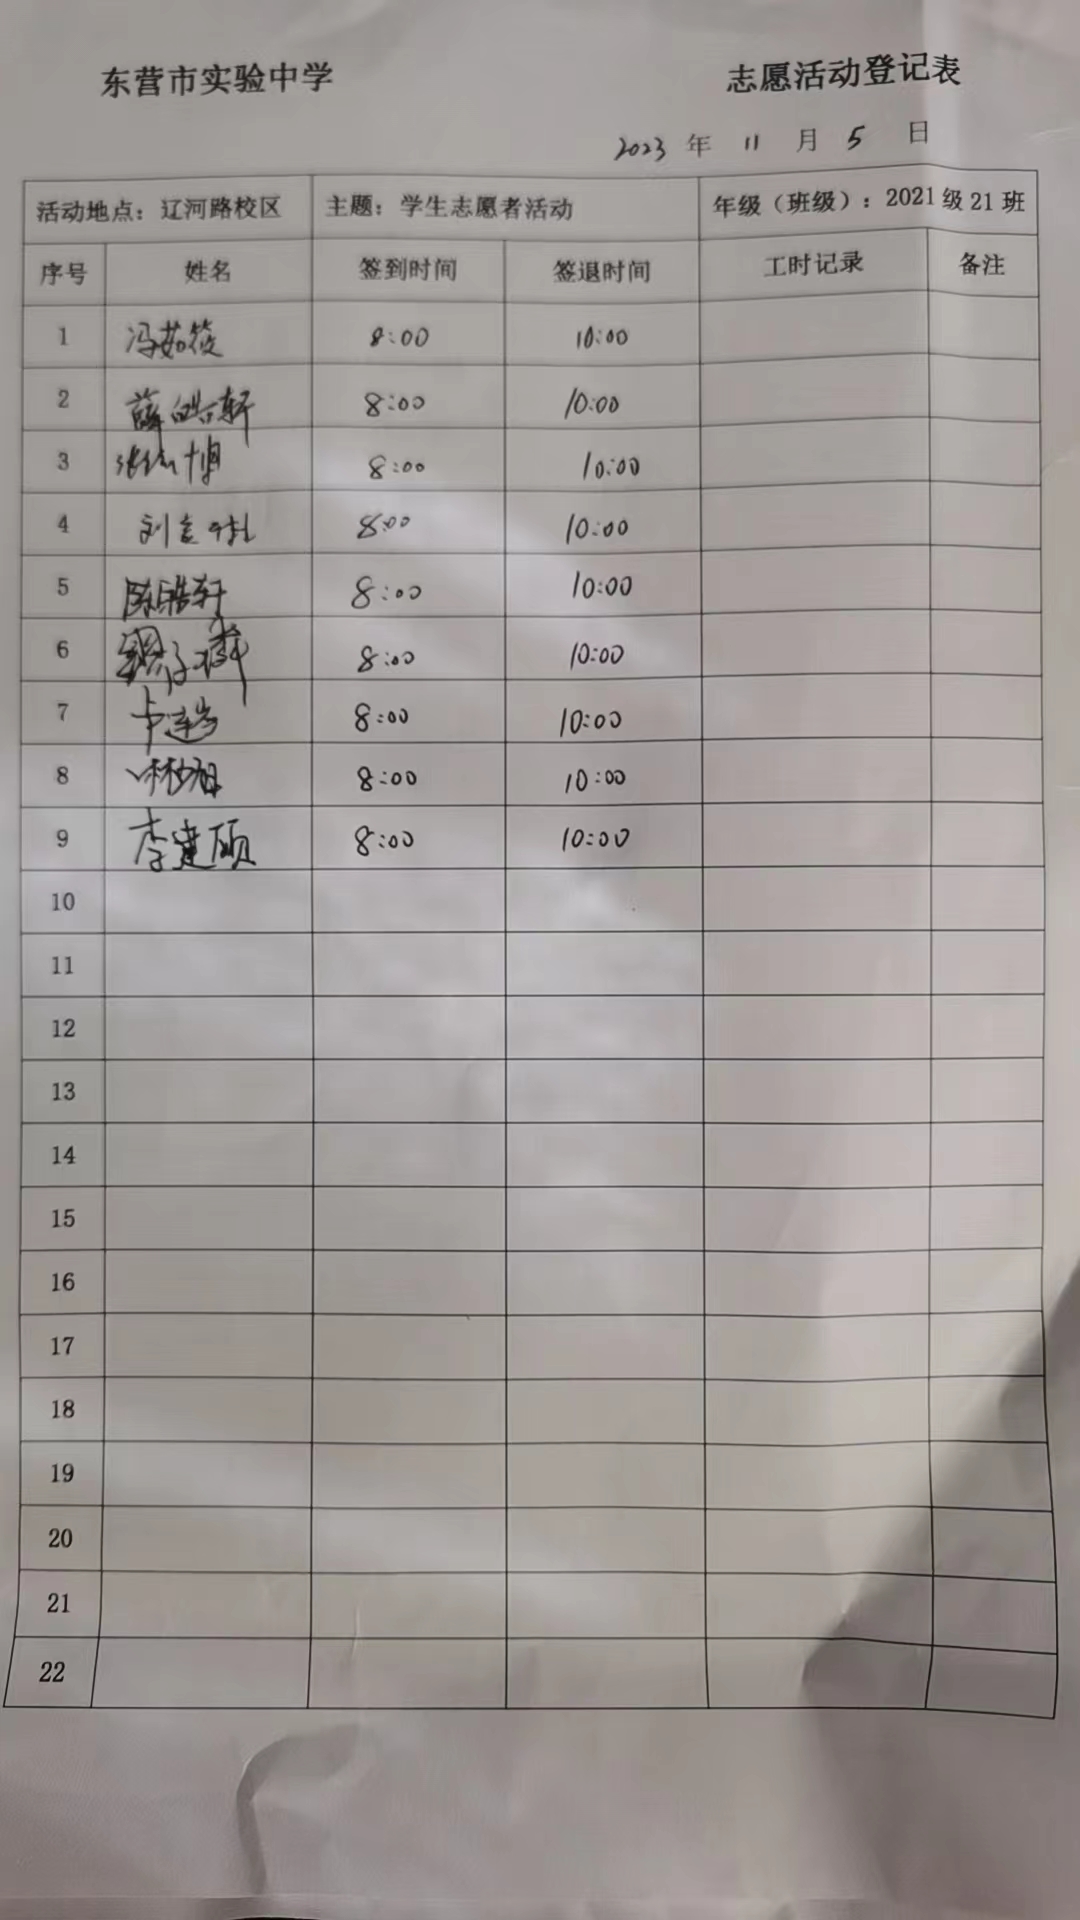 东营市实验中学 志愿活动登记表
2023 年 11 月 5 日
活动地点：辽河路校区 主题：学生志愿者活动 年级（班级）：2021级21班
序号 姓名 签到时间 签退时间 工时记录 备注
1 冯茹筱 8:00 10:00
2 薛皓轩 8:00 10:00
3 8:00 10:00
4 8:00 10:00
5 陈皓轩 8:00 10:00
6 8:00 10:00
7 8:00 10:00
8 8:00 10:00
9 李建硕 8:00 10:00
10
11
12
13
14
15
16
17
18
19
20
21
22